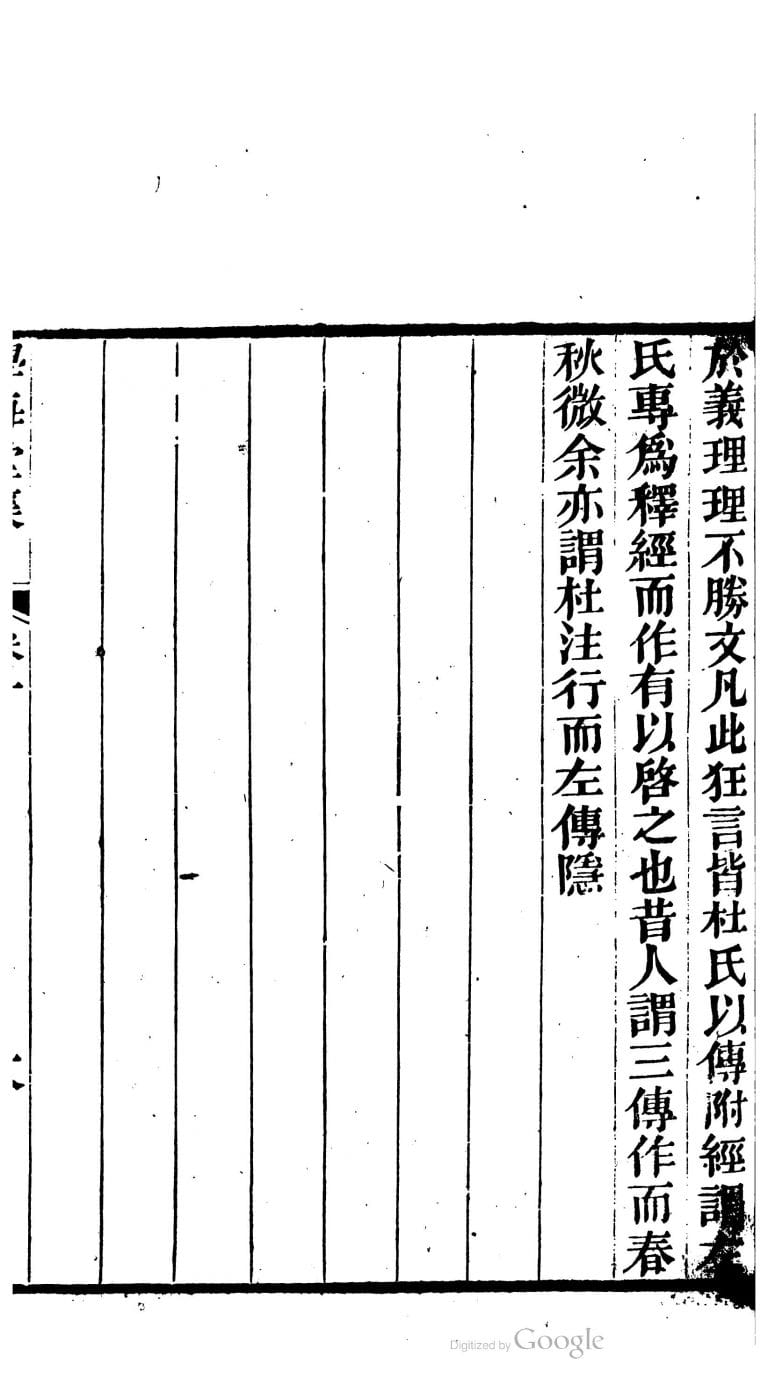 於義理理不勝文凡此狂言皆杜氏以傳附經謂左
氏專爲釋經而作有以啓之也昔人謂三傳作而春
秋微余亦謂杜注行而左傳隱
Digitized by Google